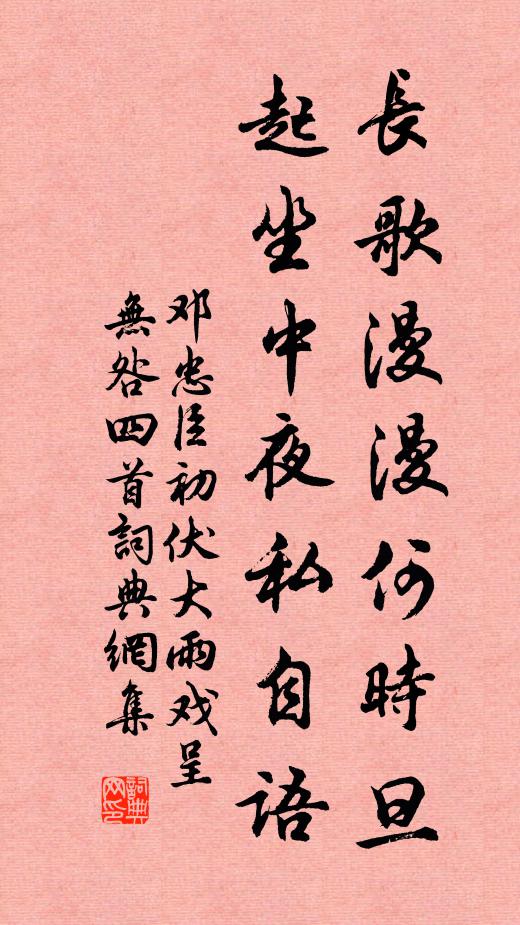 長歌漫漫何時旦
起坐中夜私自語
邓忠臣初伏大雨戏呈
無咎四首詞典網集
詞典网印